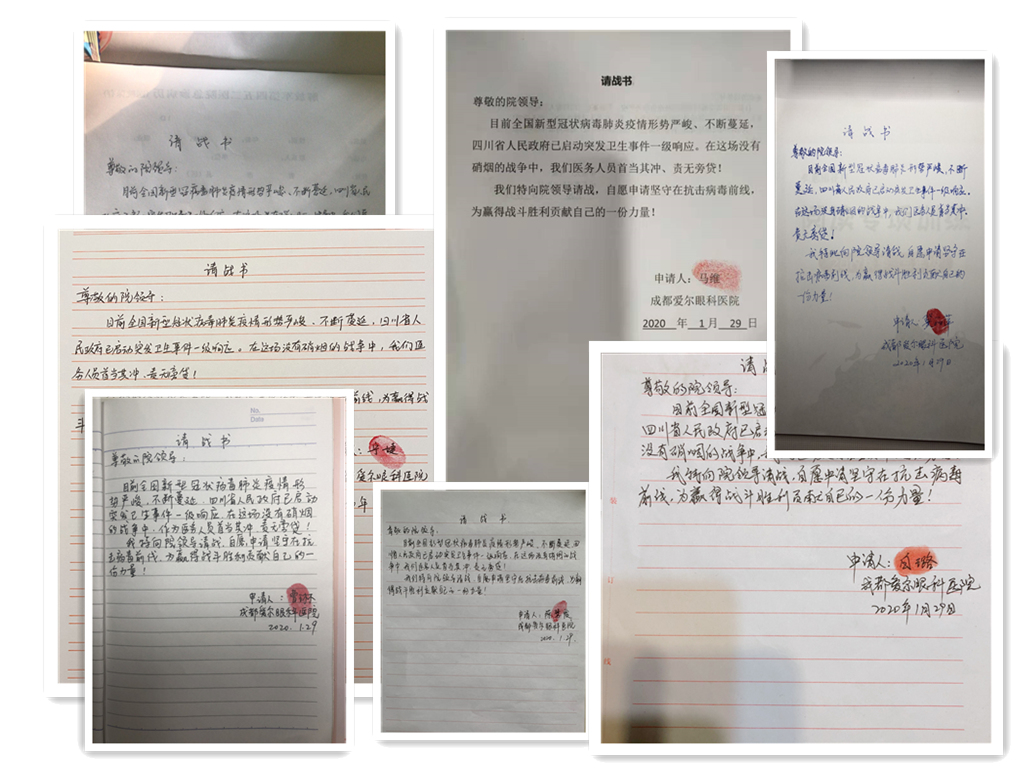 请战书
尊敬的院领导：
目前全国新型冠状病毒肺炎疫情形势严峻、不断蔓延，四川省人民
请战书
尊敬的院领导：
目前全国新型冠状病毒肺炎疫情形势严峻、不断蔓延，
四川省人民政府已启动突发卫生事件一级响应。在这场没有
硝烟的战争中，我们医务人员首当其冲、责无旁贷！
我们特向院领导请战，自愿申请坚守在抗击病毒前线，
为赢得战斗胜利贡献自己的一份力量！
申请人：马维
成都爱尔眼科医院
2020 年 1 月 29 日
请战书
尊敬的院领导：
目前全国新型冠状病毒肺炎形势严峻、不断
蔓延，四川省人民政府已启动突发卫生事件一级响应。
在这场没有硝烟的战争中，我们医务人员首当其冲、
责无旁贷！
我特此向院领导请战，自愿申请坚守在
抗击病毒前线，为赢得战斗胜利贡献自己的
一份力量！
申请人
成都爱尔眼科医院
2020年1月29日
请战书
尊敬的院领导：
目前全国新型冠状病毒肺炎疫情形势严峻、不断蔓延，四川省人
民政府已启动突发卫生事件一级响应。在这场没有硝烟的战争中，我们医
务人员首当其冲、责无旁贷！
前线，为赢得战
斗
爱尔眼科医院
年
No.
Date
请战书
尊敬的院领导：
目前全国新型冠状病毒肺炎疫情形
势严峻、不断蔓延，四川省人民政府已启动
突发卫生事件一级响应。在这场没有硝烟
的战争中，作为医务人员首当其冲、责无旁贷！
我特向院领导请战，自愿申请坚守在抗
击病毒前线，为赢得战斗胜利贡献自己的一
份力量！
申请人：
成都爱尔眼科医院
2020.1.29
请战书
尊敬的院领导：
目前全国新型冠状病毒肺炎疫情形势严峻、不断蔓延，四
川省人民政府已启动突发卫生事件一级响应。在这场没有硝烟的战
争中，我们医务人员首当其冲、责无旁贷！
我们特向院领导请战，自愿申请坚守在抗击病毒前线，为赢
得战斗胜利贡献自己的一份力量！
申请人：
成都爱尔眼科医院
2020.1.29.
请
尊敬的院领导：
目前全国新型冠
四川省人民政府已启
没有硝烟的战争中，
我特向院领导请战，自愿申请坚守在抗击病毒
前线，为赢得战斗胜利贡献自己的一份力量！
申请人：
成都爱尔眼科医院
2020年1月29日
装
订
线